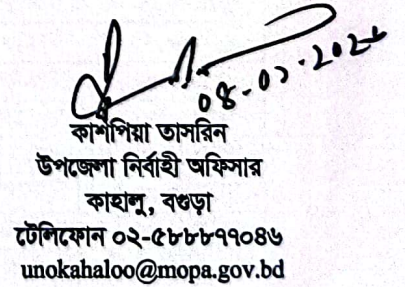 কাশপিয়া তাসরিন
উপজেলা নির্বাহী অফিসার
কাহালু, বগুড়া
টেলিফোন ০২-৫৮৮৮৭৭০৪৬
unokahaloo@mopa.gov.bd